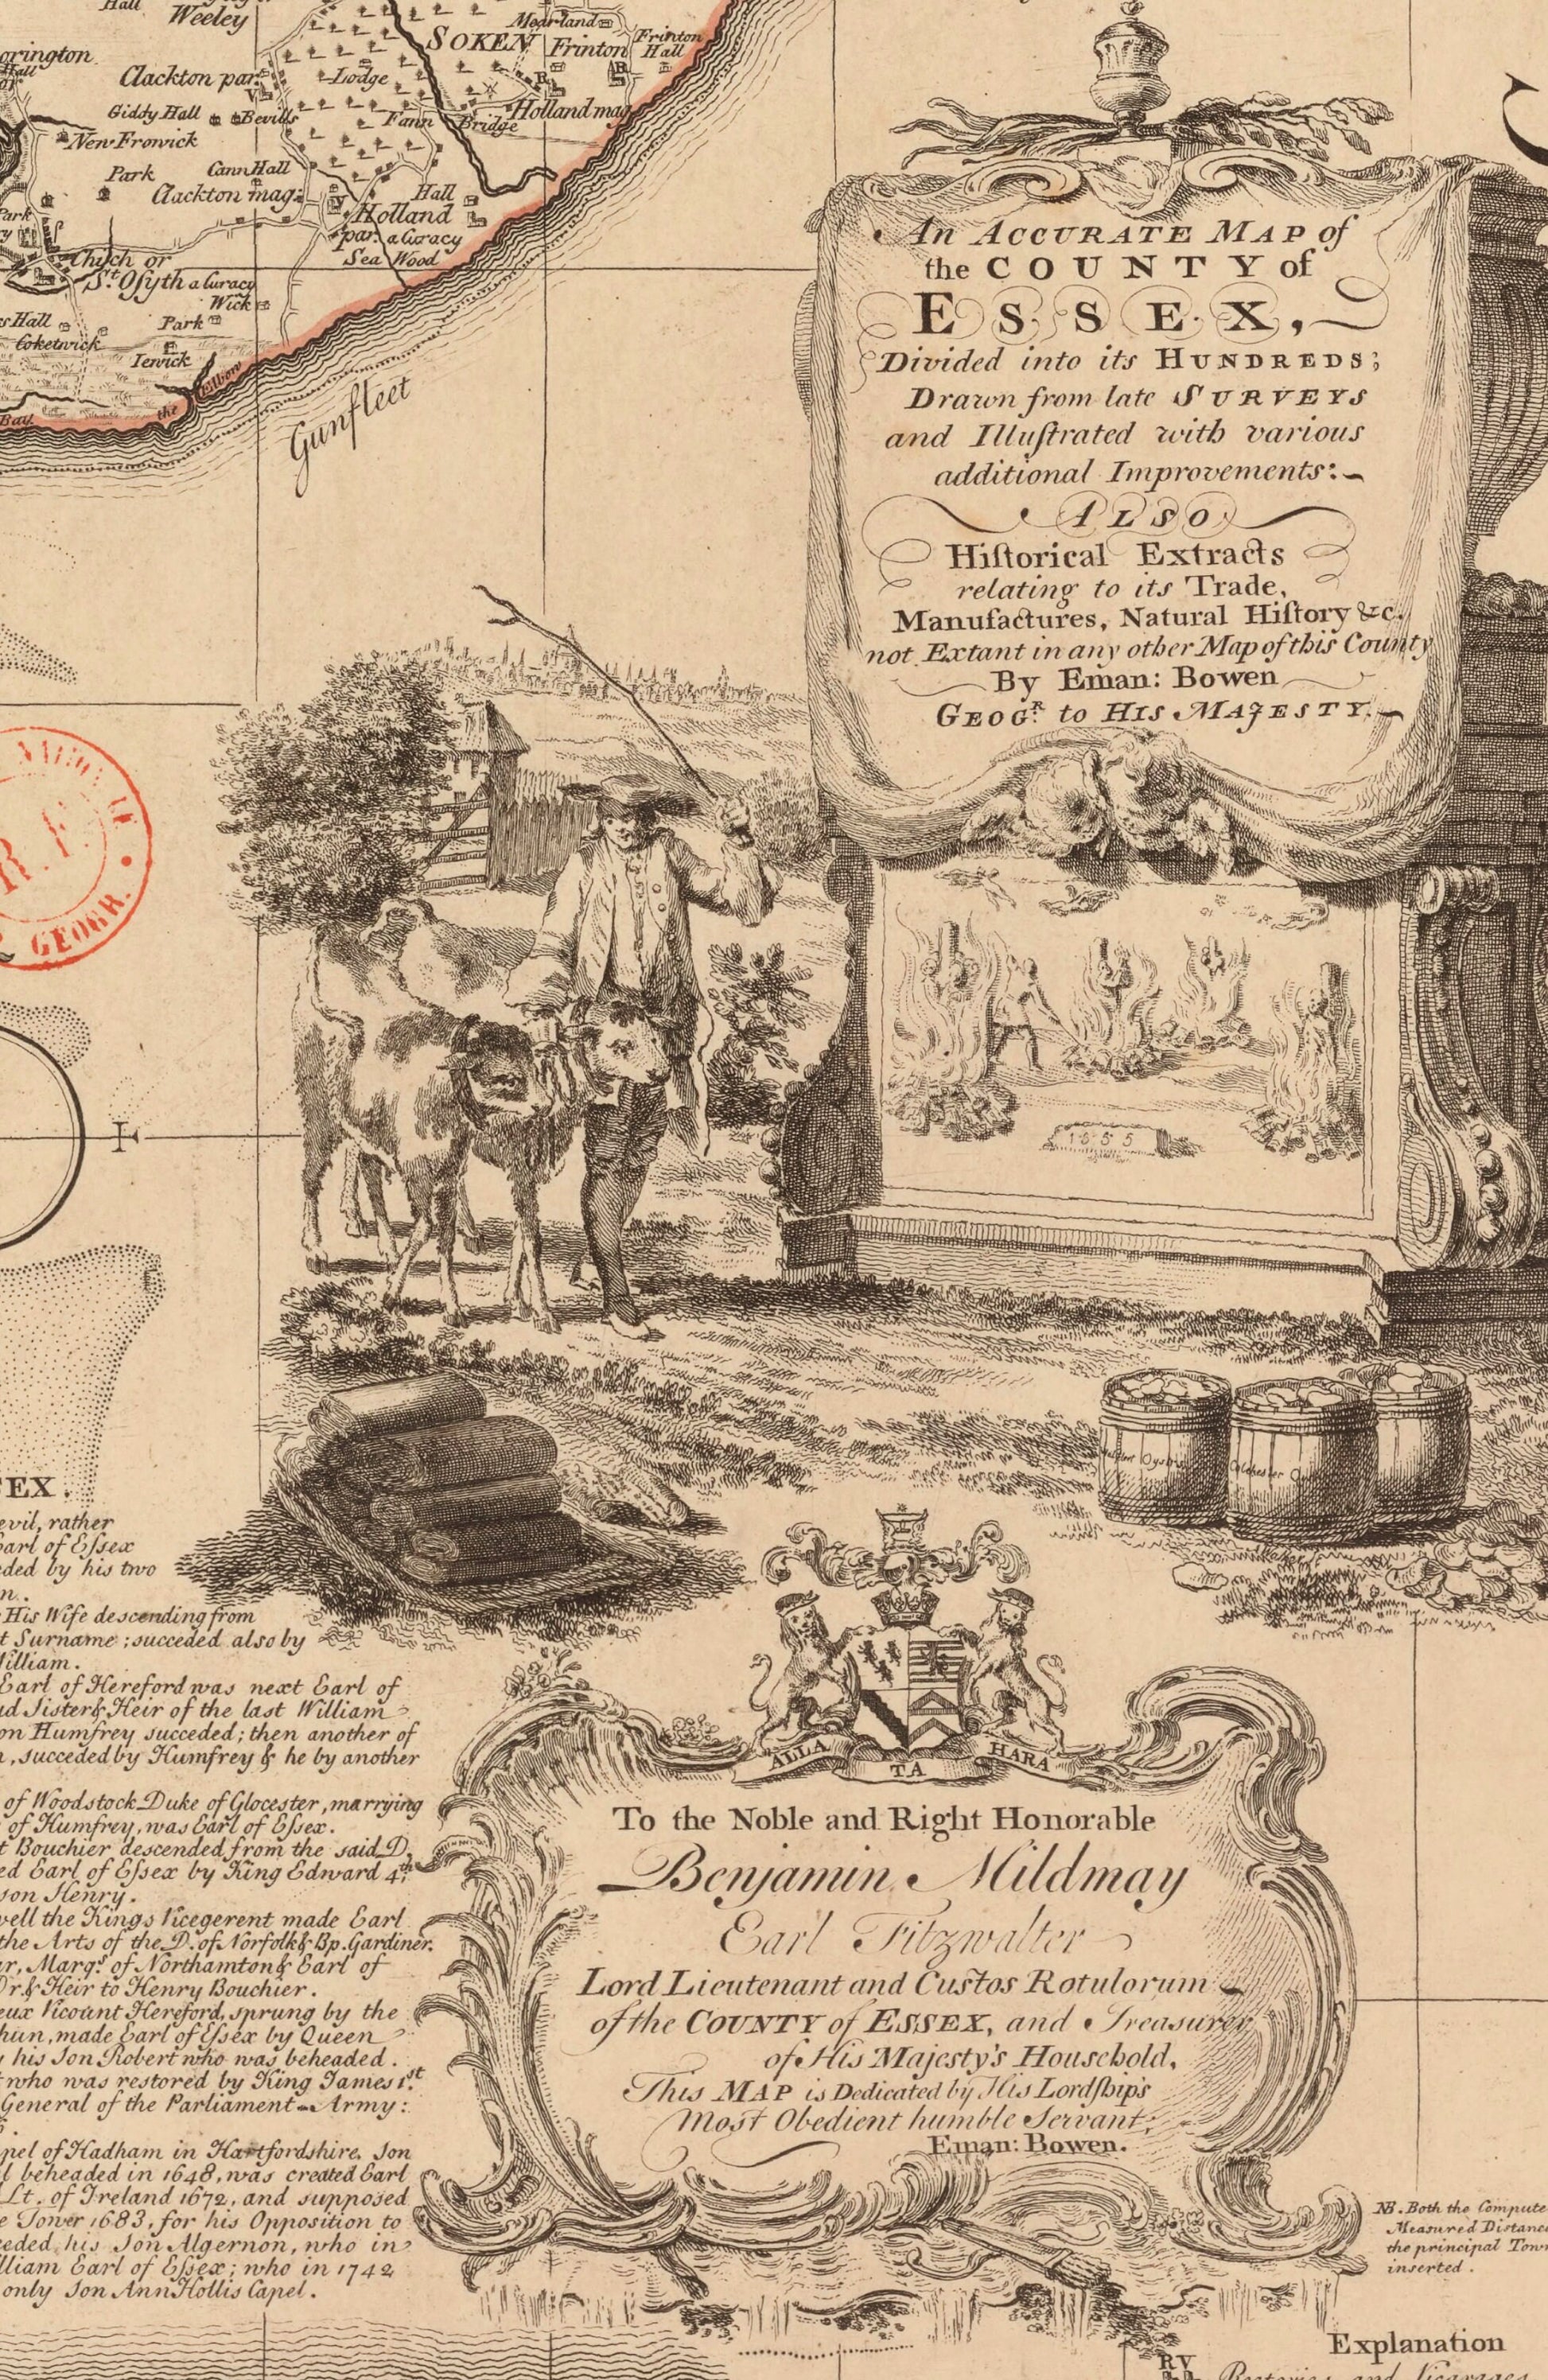 Hall
Weeley
Mearland
SOKEN
Frinton
Frinton
Hall
Clackton par.
Lodge
R
R
V
Giddy Hall
Bevills
Fann
Bridge
Holland mag
New Frowick
Park
Cann Hall
Clackton mag:
V
Hall
Holland
par. a Curacy
Sea Wood
Park
Chich or
St. Osyth a Curacy
Wick
Hall
Park
Coketwick
Iewick
Bay.
the Elbow
Gunfleet
An ACCURATE MAP of
the COUNTY of
ESSEX,
Divided into its HUNDREDS;
Drawn from late SURVEYS
and Illuſtrated with various
additional Improvements:
ALSO
Hiſtorical Extracts
relating to its Trade,
Manufactures, Natural Hiſtory &c.
not Extant in any other Map of this County
By Eman: Bowen
GEOGR. to HIS MAJESTY.
R.F.
GEOGR.
E
1555
Colchester
EX.
evil, rather
Earl of Eſsex
eded by his two
n.
His Wife descending from
t Surname; succeded also by
William.
Earl of Hereford was next Earl of
nd Sister & Heir of the last William
on Humfrey succeded; then another of
, succeded by Humfrey & he by another
of Woodstock Duke of Glocester, marrying
of Humfrey, was Earl of Eſsex.
t Bouchier descended from the said D.
ed Earl of Eſsex by King Edward 4th.
son Henry.
well the Kings Vicegerent made Earl
the Arts of the D. of Norfolk & Bp. Gardiner.
r, Marqs. of Northamton & Earl of
Dr. & Heir to Henry Bouchier.
eux Vicount Hereford, sprung by the
hun, made Earl of Eſsex by Queen
his Son Robert who was beheaded.
who was restored by King James 1st.
General of the Parliament-Army:
pel of Hadham in Hartfordshire, Son
l beheaded in 1648, was created Earl
Lt. of Ireland 1672, and supposed
e Tower 1683, for his Opposition to
ceeded, his Son Algernon, who in
lliam Earl of Eſsex; who in 1742
only Son Ann Hollis Capel.
ALLA TA HARA
To the Noble and Right Honorable
Benjamin Mildmay
Earl Fitzwalter
Lord Lieutenant and Custos Rotulorum
of the COUNTY of ESSEX, and Treasurer
of His Majesty's Household,
This MAP is Dedicated by His Lordſhip's
Most Obedient humble Servant,
Eman: Bowen.
NB. Both the Compute
Measured Distanc
the principal Town
inserted.
Explanation
RV
Rectories and Vicarages